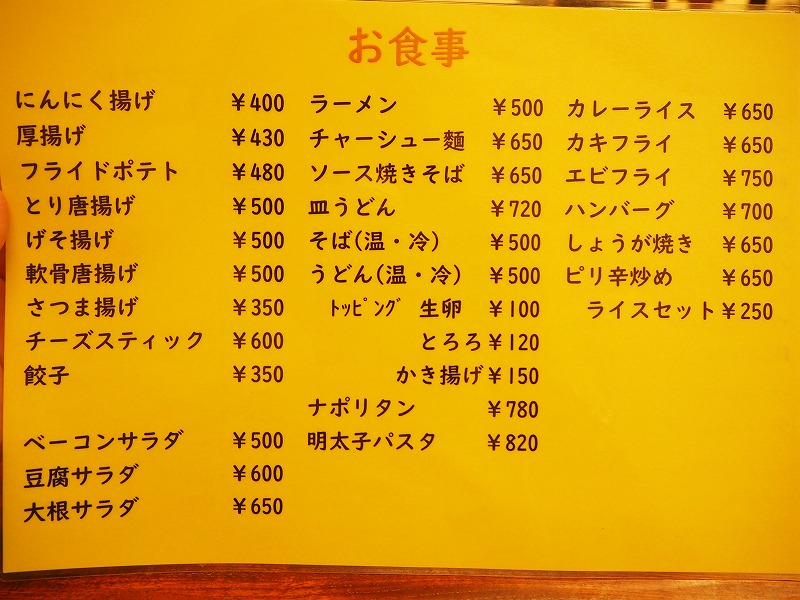 お食事
にんにく揚げ ￥400
厚揚げ ￥430
フライドポテト ￥480
とり唐揚げ ￥500
げそ揚げ ￥500
軟骨唐揚げ ￥500
さつま揚げ ￥350
チーズスティック ￥600
餃子 ￥350
ベーコンサラダ ￥500
豆腐サラダ ￥600
大根サラダ ￥650
ラーメン ￥500
チャーシュー麵 ￥650
ソース焼きそば ￥650
皿うどん ￥720
そば(温・冷) ￥500
うどん(温・冷) ￥500
ﾄｯﾋﾟﾝｸﾞ 生卵 ￥100
とろろ￥120
かき揚げ￥150
ナポリタン ￥780
明太子パスタ ￥820
カレーライス ￥650
カキフライ ￥650
エビフライ ￥750
ハンバーグ ￥700
しょうが焼き ￥650
ピリ辛炒め ￥650
ライスセット￥250